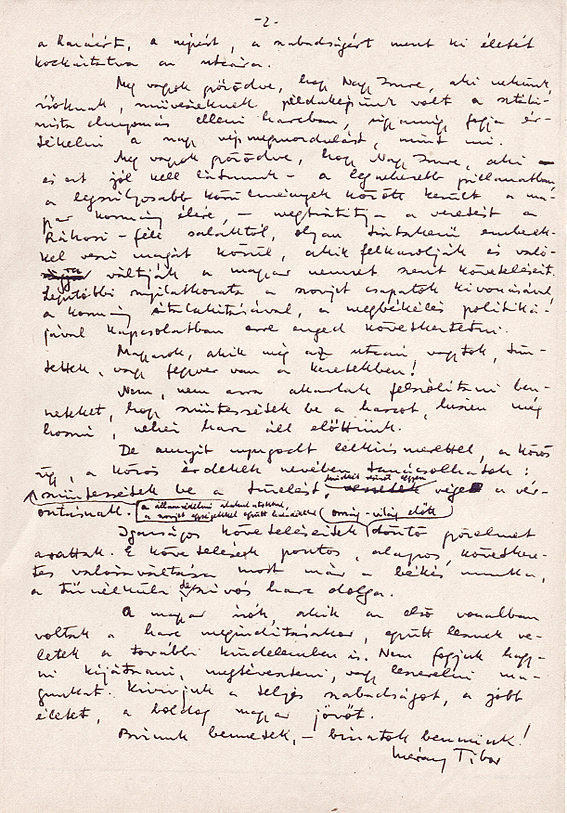 -2-
a hazáért, a népért, a szabadságért ment ki életét
kockáztatva az utcára.
Meg vagyok győződve, hogy Nagy Imre, aki nekünk,
íróknak, művészeknek példaképünk volt a sztáli-
nista elnyomás elleni harcban, ugyanúgy fogja ér-
tékelni a nagy népmegmozdulást, mint mi.
Meg vagyok győződve, hogy Nagy Imre, aki –
és ezt jól kell látnunk – a legnehezebb pillanatban,
a legsúlyosabb körülmények között került a ma-
gyar kormány élére, – megtisztítja a vezetést a
Rákosi-féle salaktól, olyan tisztakezű emberek-
kel veszi magát körül, akik felkarolják és való-
váltják a magyar nemzet szent követeléseit.
Legutóbbi nyilatkozata a szovjet csapatok kivonásával,
a kormány átalakításával, a megbékélés politiká-
jával kapcsolatban erre enged következtetni.
Magyarok, akik még az utcán vagytok, tün-
tettek, vagy fegyver van a kezetekben!
Nem, nem arra akarlak felszólítani ben-
neteket, hogy szüntessétek be a harcot, hiszen még
hosszú, nehéz harc áll előttünk.
De annyit nyugodt lelkiismerettel, a közös
ügy, a közös érdekek nevében tanácsolhatok:
szüntessétek be a tüzelést, vége a vér-
ontásnak.
az államvédelmi alakulatokkal,
a szovjet egységekkel együtt
ország-világ előtt
Igazságos követeléseitek döntő győzelmet
arattak. E követelések pontos, alapos, következe-
tes valóraváltása most már a békés munka,
a tűz nélküli de szívós harc dolga.
A magyar írók, akik az első vonalban
voltak a harc megindításakor, együtt lesznek ve-
letek a további küzdelemben is. Nem fogjuk hagy-
ni kijátszani, megtéveszteni, vagy leszerelni ma-
gunkat. Kivívjuk a teljes szabadságot, a jobb
életet, a boldog magyar jövőt.
Bízunk bennetek, – bízzatok bennünk!
Méray Tibor